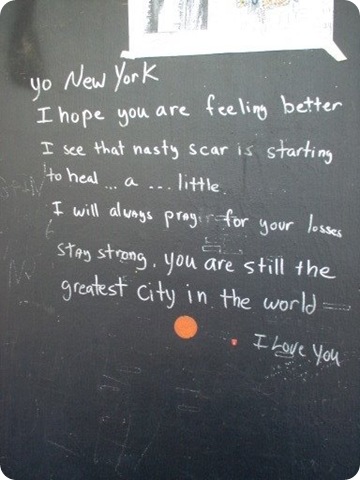 yo New York
I hope you are feeling better
I see that nasty scar is starting
to heal... a ... little.
I will always pray for your losses
stay strong. you are still the
greatest city in the world
I Love You